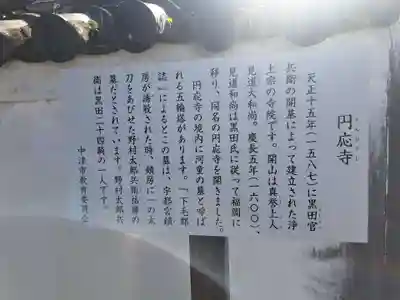 円応寺
えんのうじ
天正十五年(一五八七)に黒田官
兵衛の開基によって建立された浄
土宗の寺院です。開山は真誉上人
見道大和尚。慶長五年(一六〇〇)、
見道和尚は黒田氏に従って福岡に
移り、同名の円応寺を開きました。
円応寺の境内に河童の墓と呼ば
れる五輪塔があります。「下毛郡
誌」によるとこの墓は、宇都宮鎮
房が謀殺された時、鎮房に一の太
刀をあびせた野村太郎兵衛祐勝の
墓だとされています。野村太郎兵
衛は黒田二十四騎の一人です。
中津市教育委員会